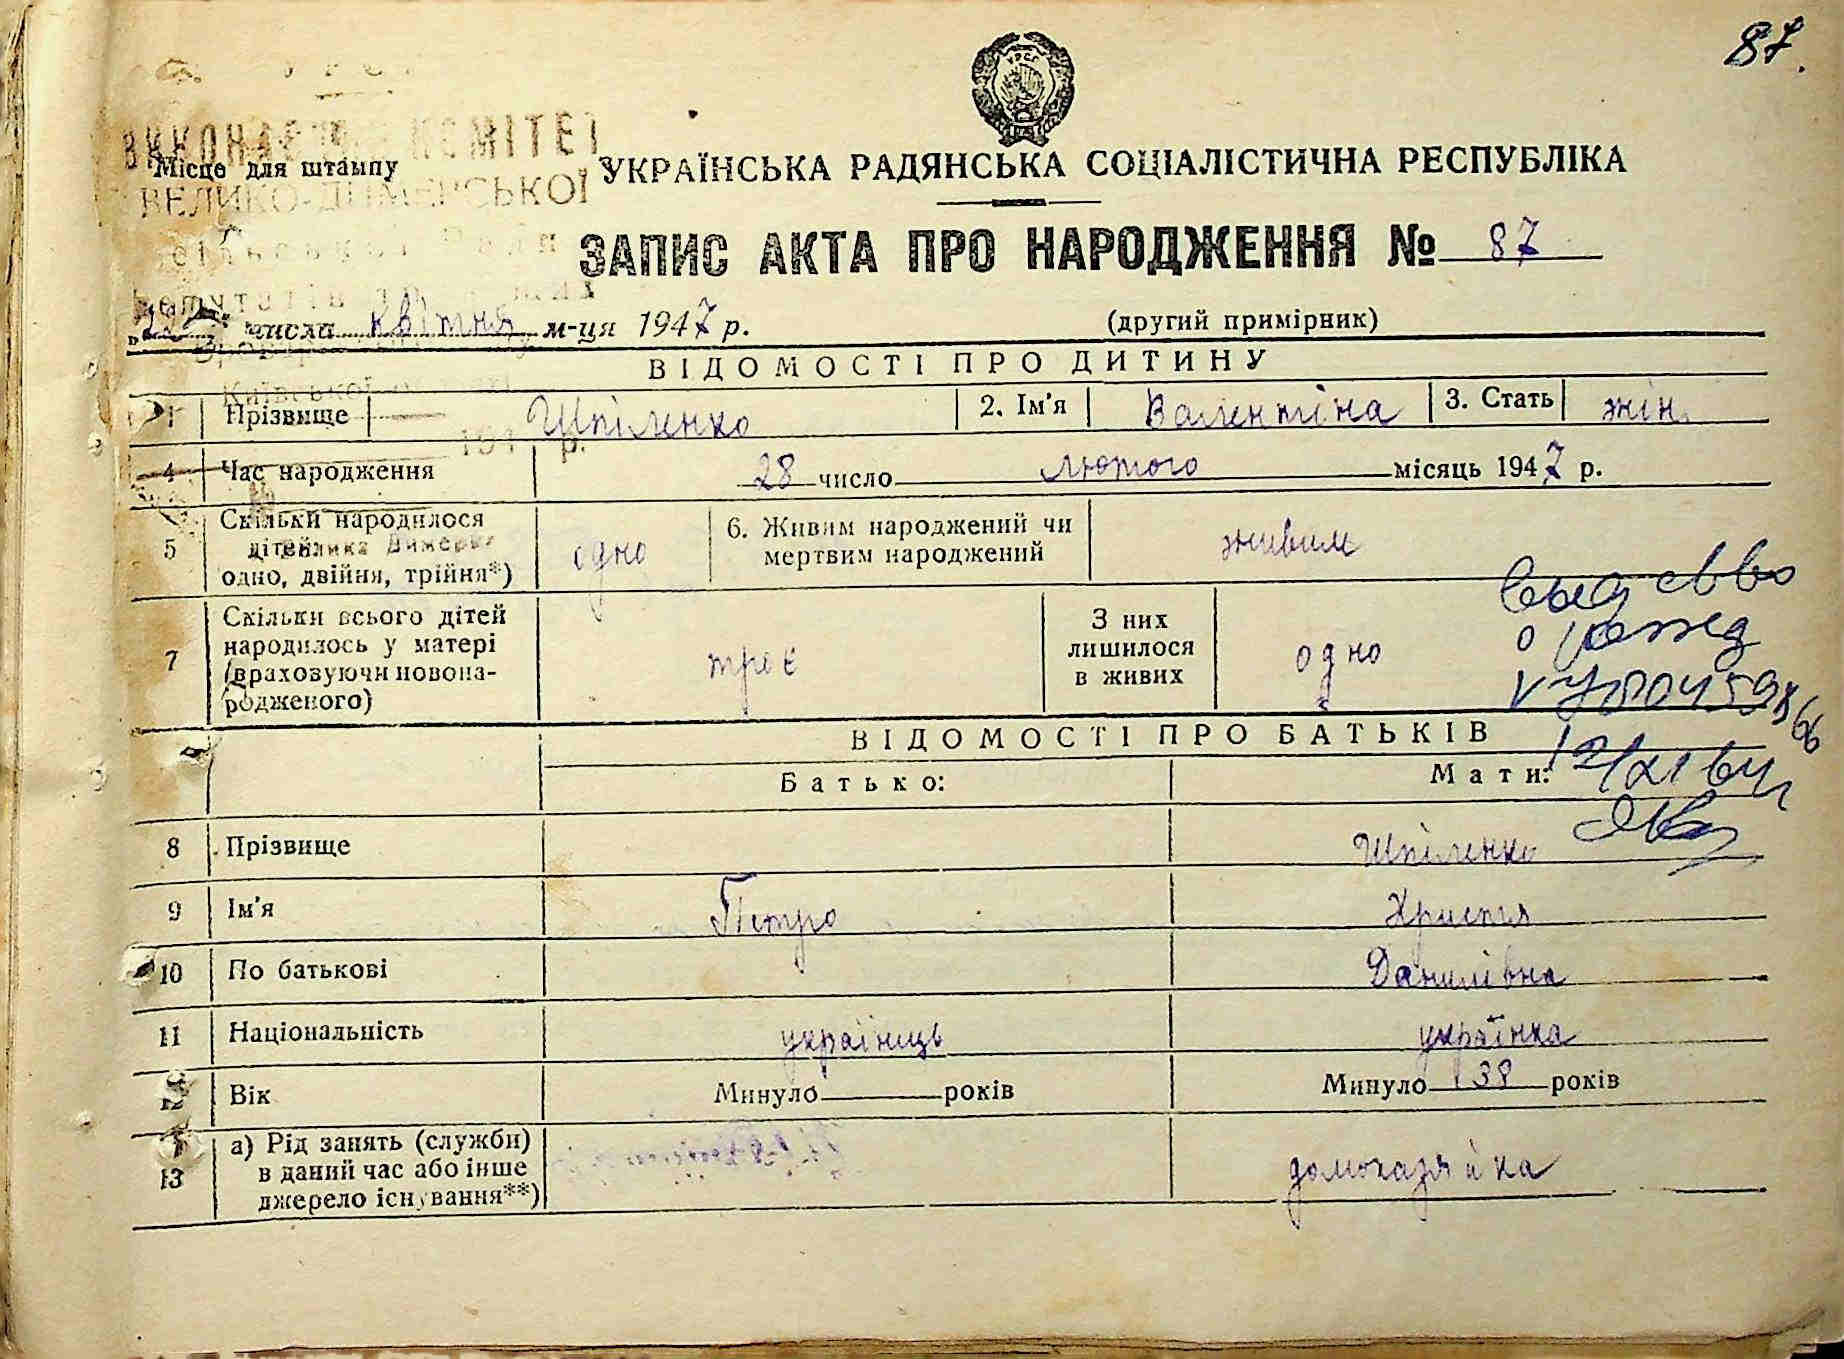 87.
УРСР
ВИКОНАВЧИЙ КОМІТЕТ
Місце для штампу
УКРАЇНСЬКА РАДЯНСЬКА СОЦІАЛІСТИЧНА РЕСПУБЛІКА
ВЕЛИКО-ДИМЕРСЬКОЇ
ЗАПИС АКТА ПРО НАРОДЖЕННЯ № 87
числа квітня м-ця 1947 р.
(другий примірник)
Київської
ВІДОМОСТІ ПРО ДИТИНУ
1 Прізвище Шпіленко 2. Ім'я Валентіна 3. Стать жін.
194 р.
4 Час народження 28 число лютого місяць 1947 р.
5 Скільки народилося дітей одно, двійня, трійня*) одно 6. Живим народжений чи мертвим народжений живим
7 Скільки всього дітей народилось у матері (враховуючи новонародженого) троє З них лишилося в живих одно
Выд св во
о рожд
ВІДОМОСТІ ПРО БАТЬКІВ
Батько: Мати:
8 Прізвище Шпіленко
9 Ім'я Петро Христя
10 По батькові Данилівна
11 Національність українець українка
12 Вік Минуло років Минуло 38 років
13 а) Рід занять (служби) в даний час або інше джерело існування**) домохазяйка